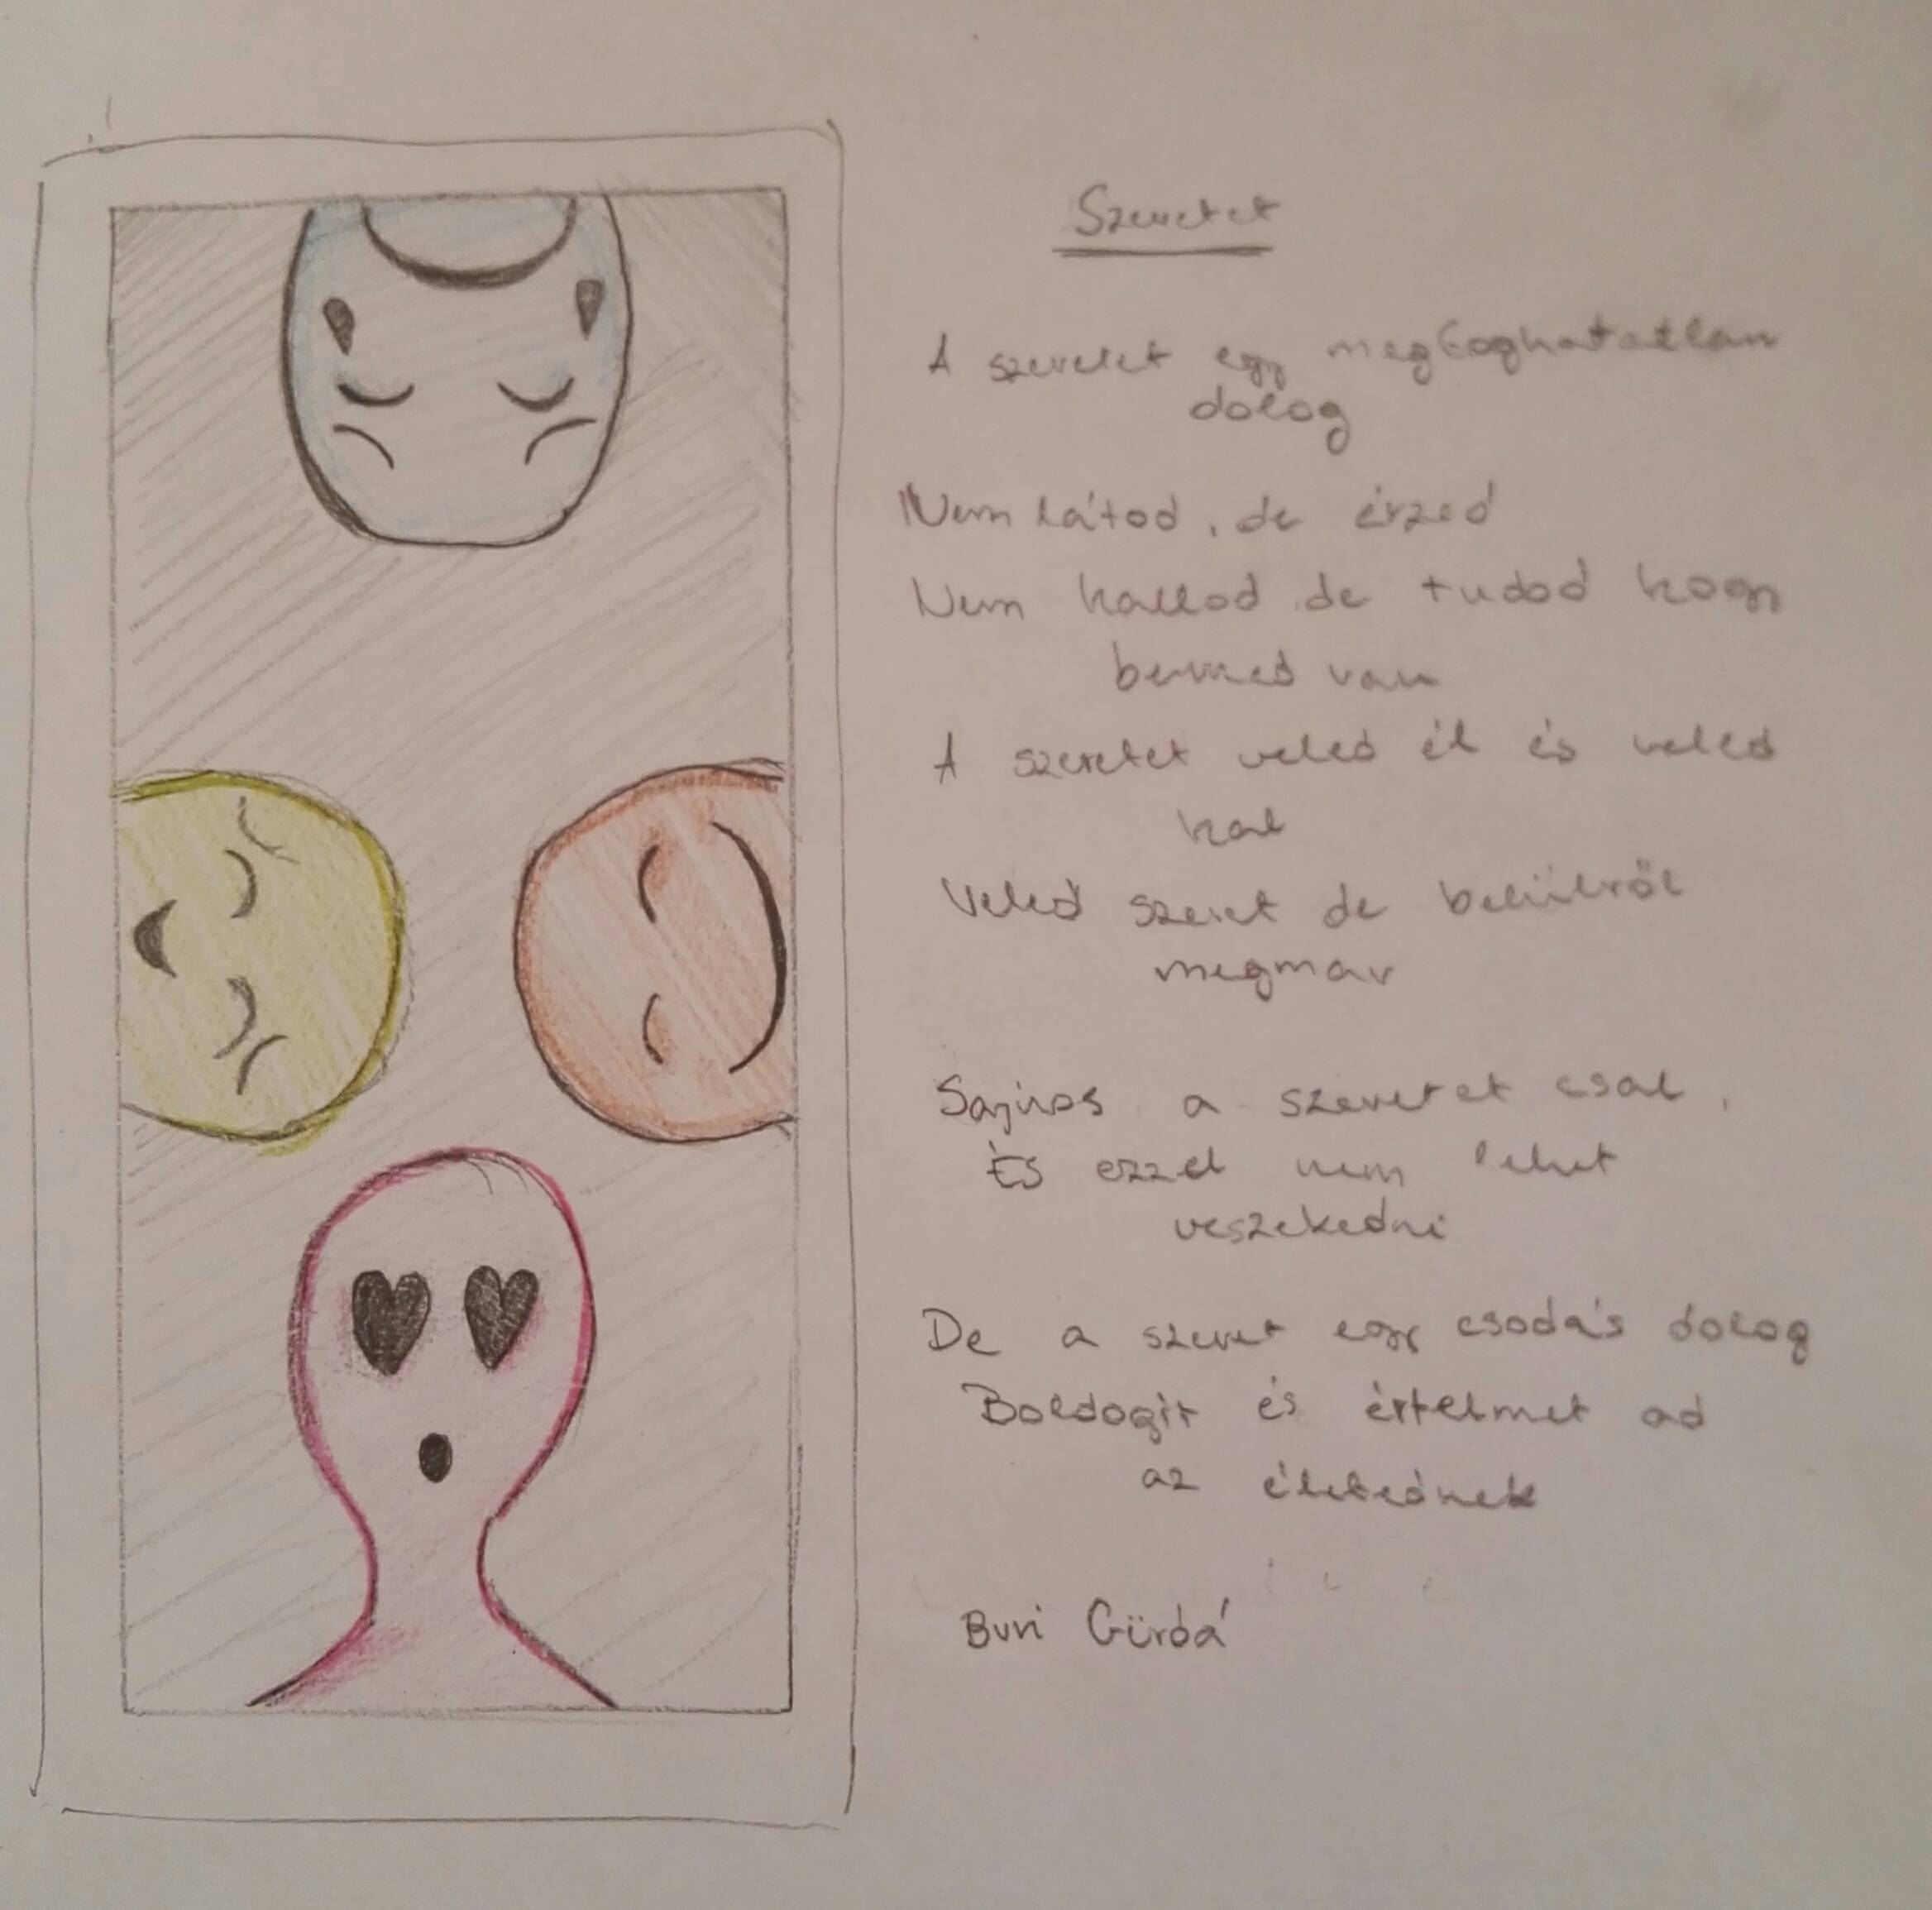 Szeretet
A szeretet egy megfoghatatlan
dolog
Nem látod, de érzed
Nem hallod, de tudod hogy
benned van
A szeretet veled él és veled
hal
Veled szeret de belülről
megmar
Sajnos a szeretet csal,
És ezzel nem lehet
veszekedni
De a szeret egy csodás dolog
Boldogit és értelmet ad
az életednek
Buri